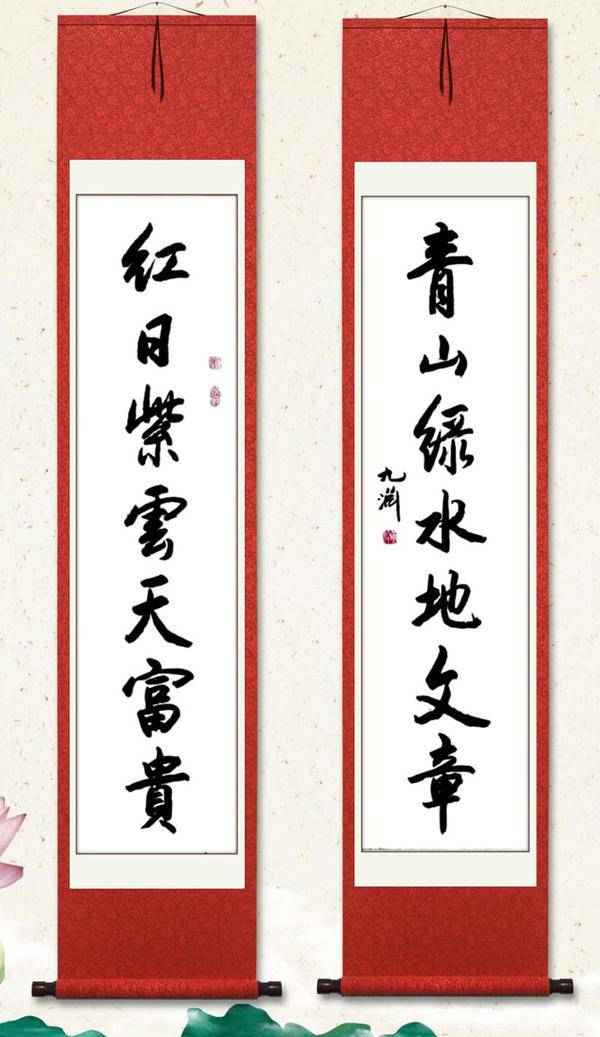 红日紫雲天富貴
青山绿水地文章
九